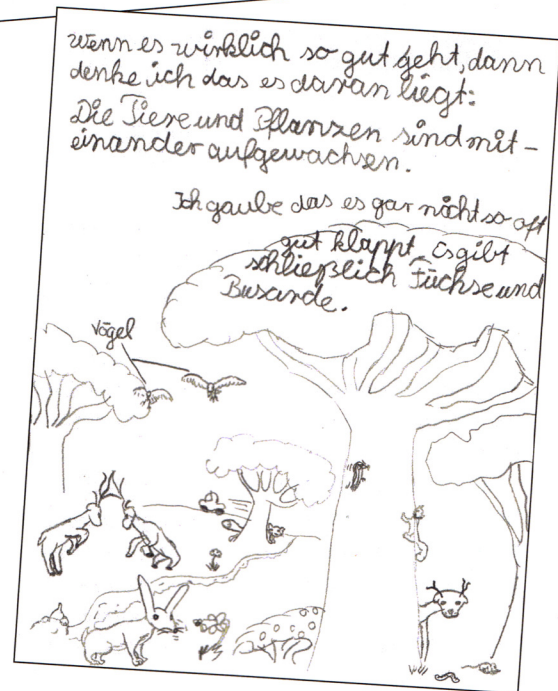 Wenn es wirklich so gut geht, dann
denke ich das es daran liegt:
Die Tiere und Pflanzen sind mit-
einander aufgewachsen.
Ich gaube das es gar nicht so oft
gut klappt. Es gibt
schließlich Füchse und
Busarde.
Vögel